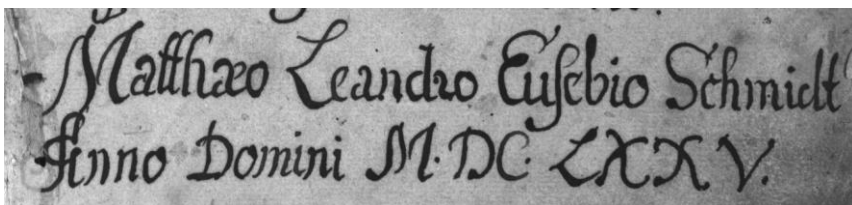 Matthæo Leandro Euſebio Schmidt
Anno Domini M. DC. LXXV.